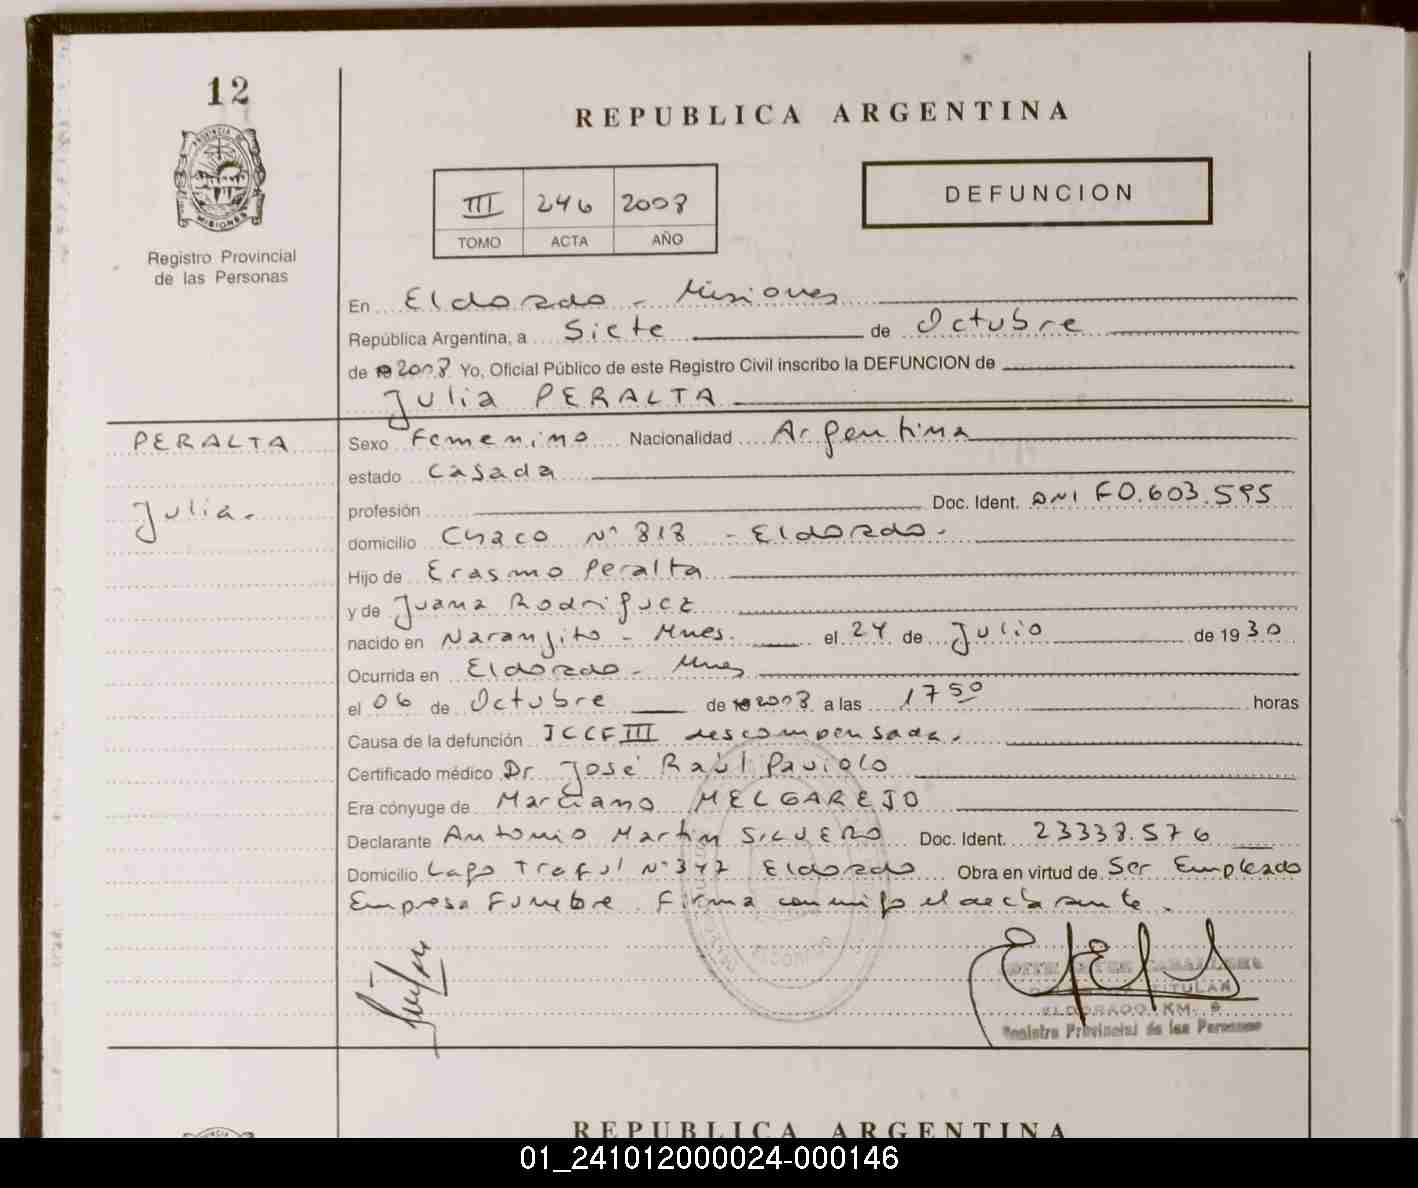 12
REPUBLICA ARGENTINA
PROVINCIA DE
MISIONES
III 246 2008
TOMO ACTA AÑO
DEFUNCION
Registro Provincial
de las Personas
En Eldorado - Misiones
República Argentina, a Siete de Octubre
de 2008 Yo, Oficial Público de este Registro Civil inscribo la DEFUNCION de
Julia PERALTA
PERALTA
Julia.
Sexo Femenino Nacionalidad Argentina
estado Casada
profesión Doc. Ident. DNI F0.603.595
domicilio Chaco Nº 818 - Eldorado.
Hijo de Erasmo Peralta
y de Juana Rodriguez
nacido en Naranjito - Mnes. el 24 de Julio de 1930
Ocurrida en Eldorado - Mnes
el 06 de Octubre de 2008 a las 17 50 horas
Causa de la defunción ICCF III descompensada.
Certificado médico Dr. José Raúl Paviolo
Era cónyuge de Marciano MELGAREJO
Declarante Antonio Martin SILVERO Doc. Ident. 23338.576
Domicilio Lago Traful Nº 347 Eldorado Obra en virtud de Ser Empleado
Empresa Funebre. Firma conmigo el declarante.
ELDORADO
TITULAR
ELDORADO KM. 9
Registro Provincial de las Personas
REPUBLICA ARGENTINA
01_241012000024-000146